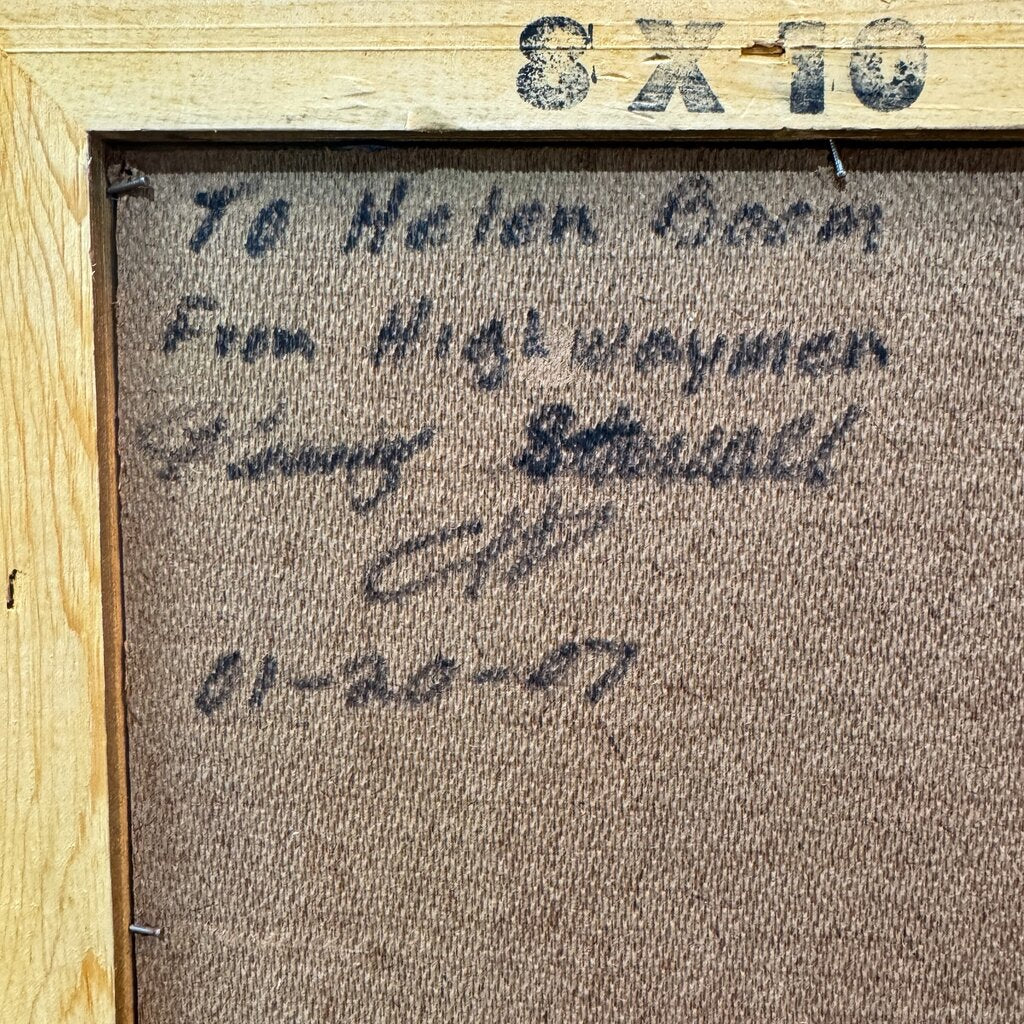 8 X 10
To Helen
From Highwaymen
Jimmy Stovall
01-20-07